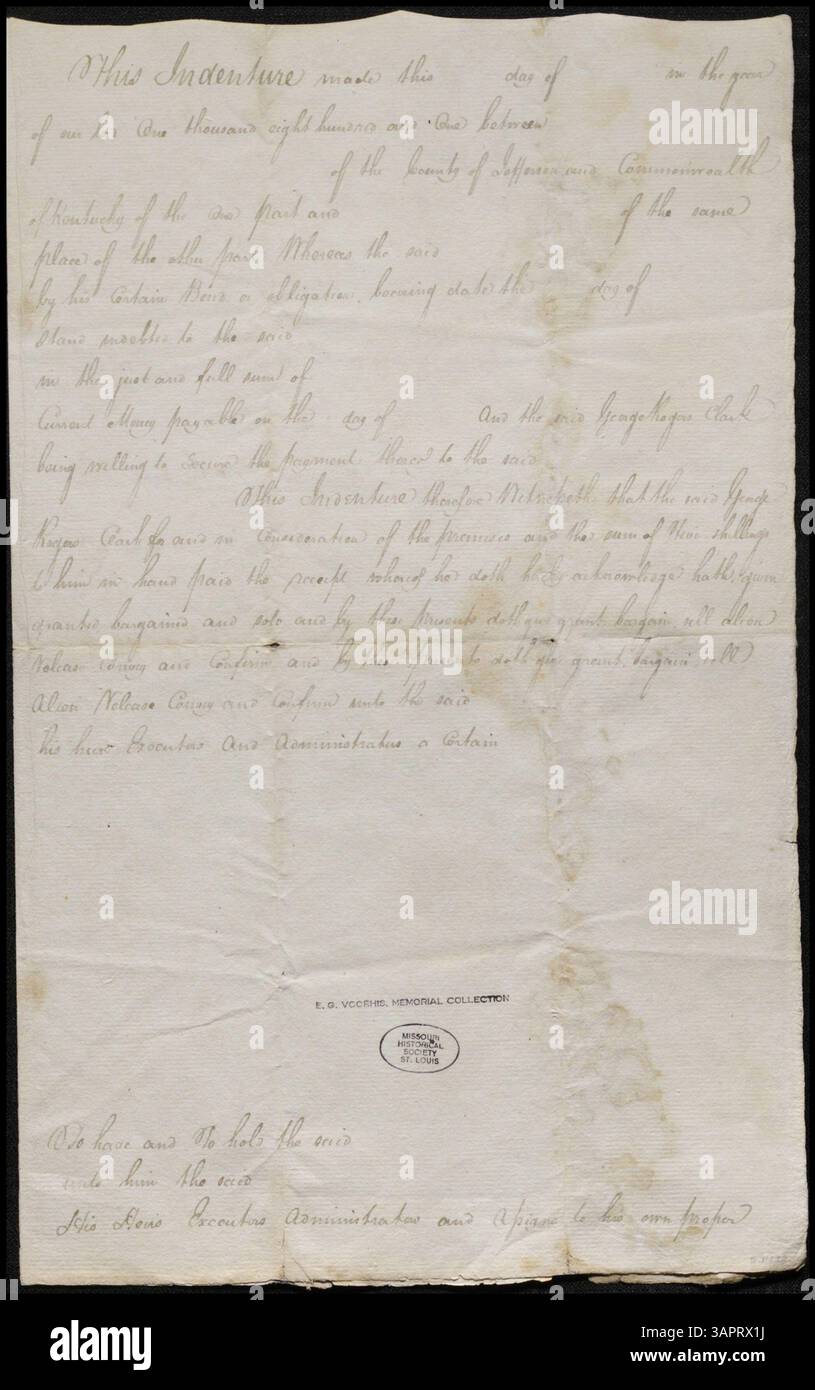 This Indenture made this day of in the year
of our One thousand eight hundred and One between
of the County of Jefferson and Commonwealth
of Kentucky of the one part and of the same
place of the other part Whereas the said
by his Certain Bond or obligation bearing date the day of
Stand indebted to the said
in the just and full sum of
Current Money payable on the day of And the said George Rogers Clark
being willing to secure the payment thereof to the said
This Indenture therefore Witnesseth that the said George
Rogers Clark for and in Consideration of the premises and the sum of five shillings
to him in hand paid the receipt whereof he doth hereby acknowledge hath given
granted bargained and sold and by these presents doth give grant bargain sell alien
Release Convey and Confirm and by these presents doth give grant bargain sell
Alien Release Convey and Confirm unto the said
his heirs Executors and Administrators a Certain
E. G. VOORHIS, MEMORIAL COLLECTION
MISSOURI
HISTORICAL
SOCIETY
ST. LOUIS
To have and To hold the said
unto him the said
His Heirs Executors Administrators and Assigns to his own proper
alamy
Image ID: 3APRX1J
www.alamy.com